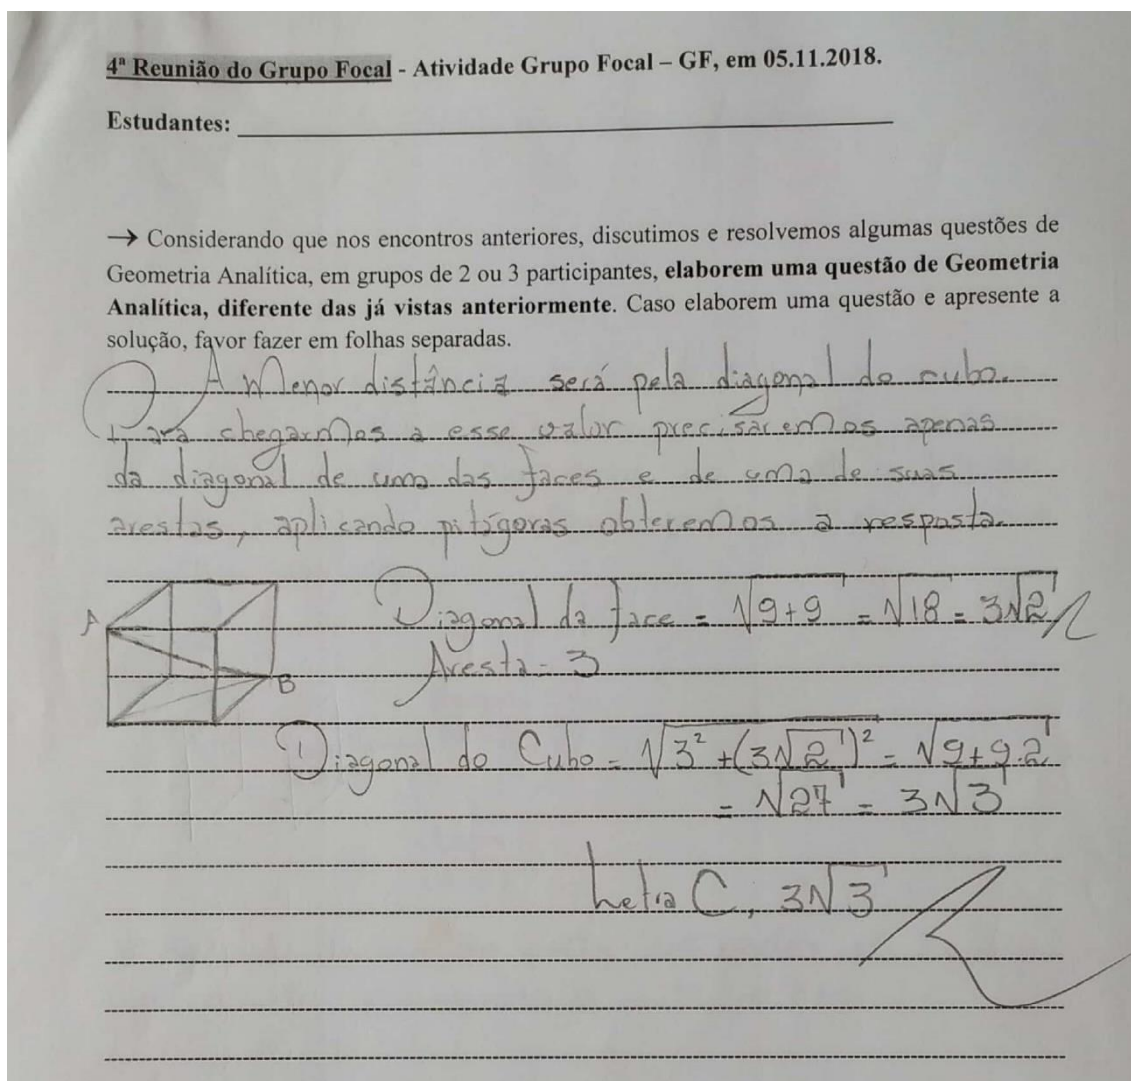 4ª Reunião do Grupo Focal - Atividade Grupo Focal – GF, em 05.11.2018.
Estudantes:
→ Considerando que nos encontros anteriores, discutimos e resolvemos algumas questões de
Geometria Analítica, em grupos de 2 ou 3 participantes, elaborem uma questão de Geometria
Analítica, diferente das já vistas anteriormente. Caso elaborem uma questão e apresente a
solução, favor fazer em folhas separadas.
A menor distância será pela diagonal do cubo.
Para chegarmos a esse valor precisaremos apenas
da diagonal de uma das faces e de uma de suas
arestas, aplicando pitágoras obteremos a resposta.
A
Diagonal da face = √9+9 = √18 = 3√2
Aresta = 3
B
Diagonal do Cubo = √3² + (3√2)² = √9+9.2
= √27 = 3√3
Letra C, 3√3